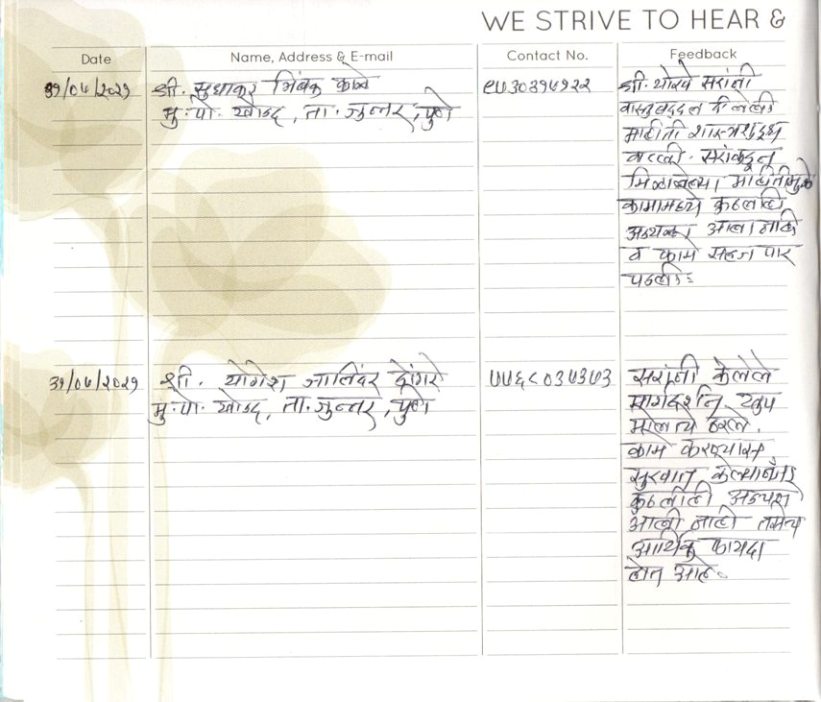 WE STRIVE TO HEAR &
Date Name, Address & E-mail Contact No. Feedback
श्री. सुधाकर त्रिंबक काळे
मु.पो. खोडद, ता. जुन्नर, पुणे
श्री. थोरवे सरांनी
वास्तुबद्दल दिलेली
माहिती शास्त्रशुद्ध
वाटली. सरांकडून
मिळालेल्या माहितीमुळे
कामामध्ये कुठलाही
अडथळा आला नाही
व कामे सहज पार
पडली.
श्री. योगेश जालिंदर डोंगरे
मु.पो. खोडद, ता. जुन्नर, पुणे
सरांनी केलेले
मार्गदर्शन खुप
मोलाचे ठरले.
काम करण्यास
सुरवात केल्यानंतर
कुठलीही अडचण
आली नाही तसेच
आर्थिक फायदा
होत आहे.